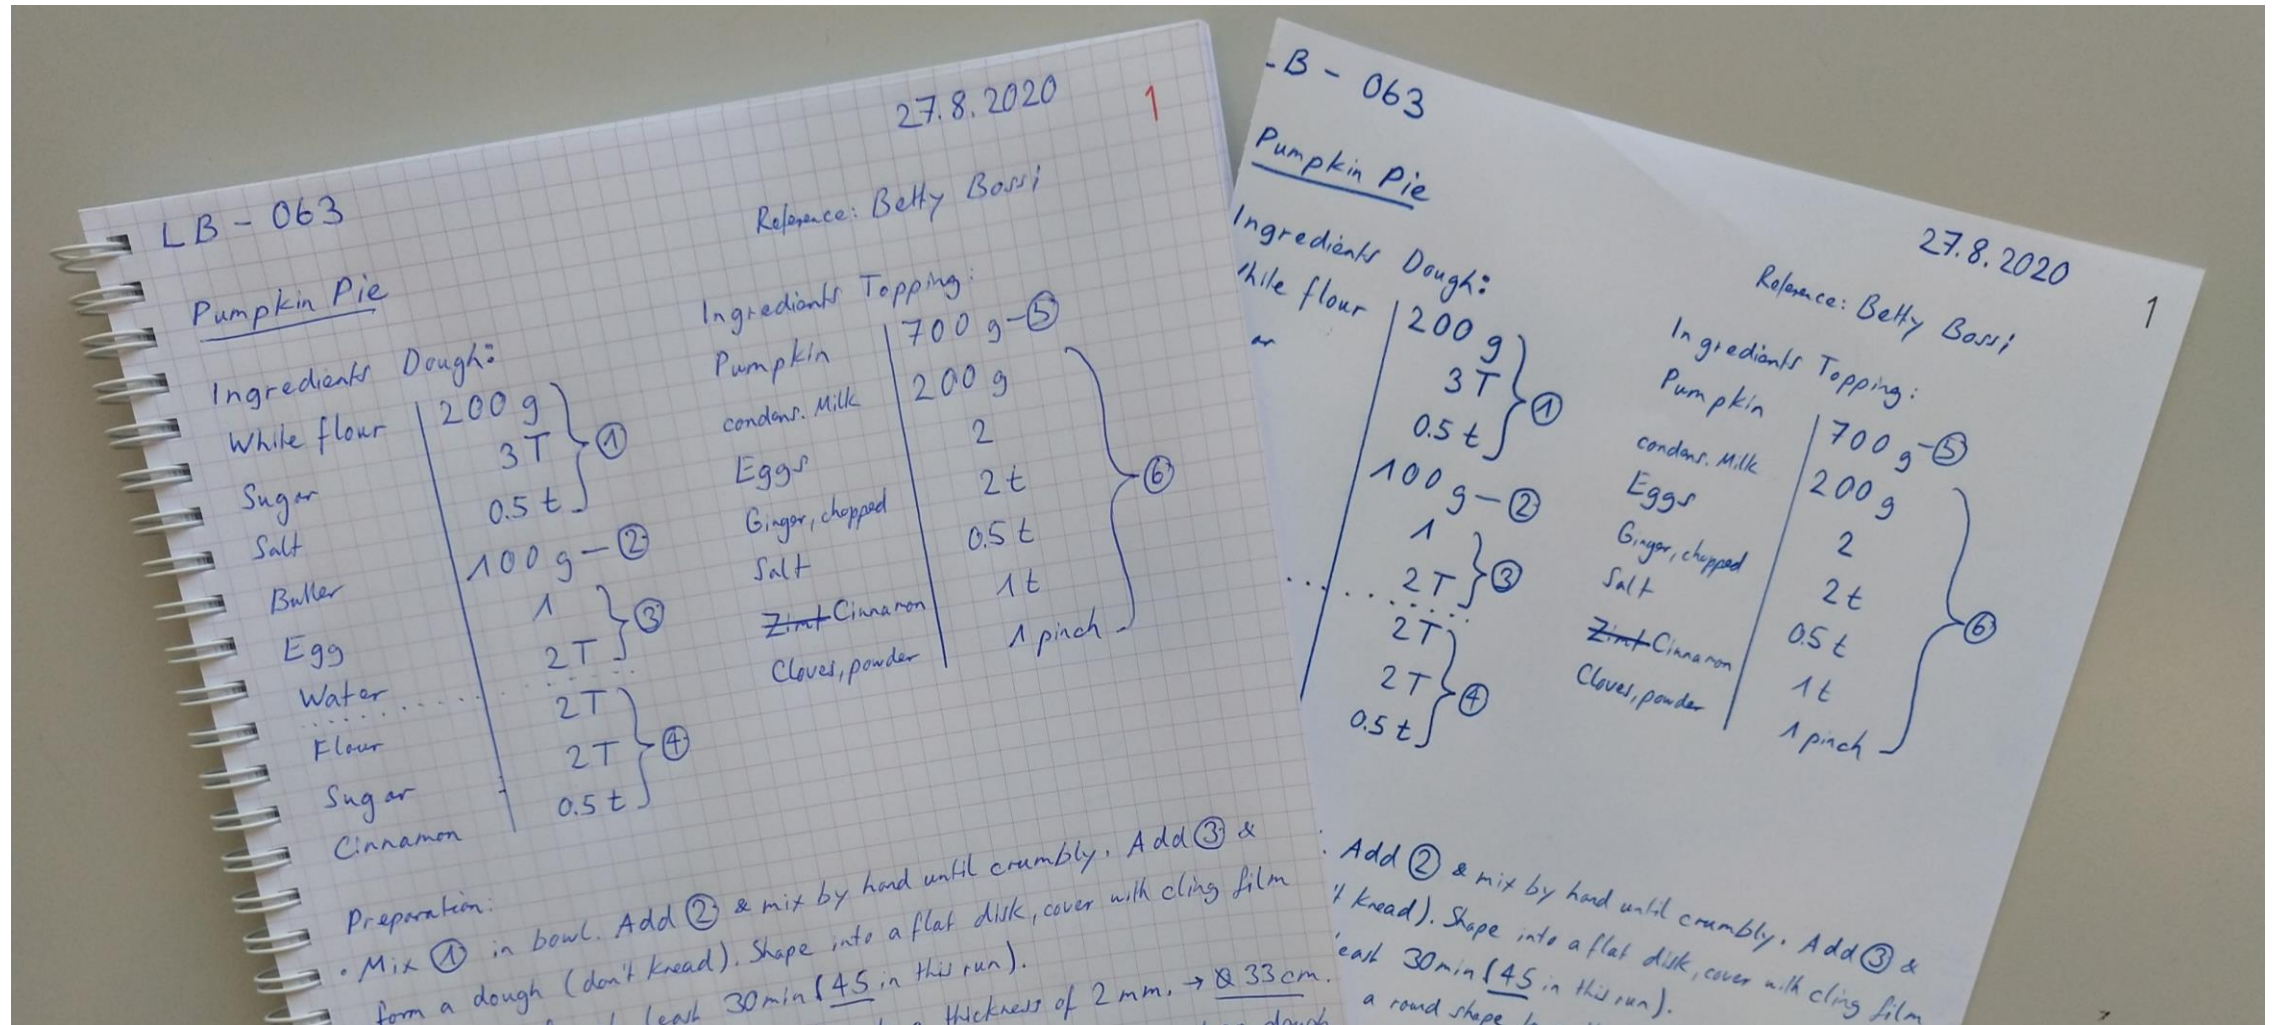 27.8.2020 1
LB - 063 Reference: Betty Bossi
Pumpkin Pie
Ingredients Dough:
White flour 200 g
Sugar 3 T
Salt 0.5 t
①
Butter 100 g - ②
Egg 1
Water 2 T
③
Flour 2 T
Sugar 2 T
Cinnamon 0.5 t
④
Ingredients Topping:
Pumpkin 700 g - ⑤
condens. Milk 200 g
Eggs 2
Ginger, chopped 2 t
Salt 0.5 t
Zimt Cinnamon 1 t
Cloves, powder 1 pinch
⑥
Preparation:
• Mix ① in bowl. Add ② & mix by hand until crumbly. Add ③ &
form a dough (don't knead). Shape into a flat disk, cover with cling film
least 30 min (45 in this run).
thickness of 2 mm. → Ø 33 cm.
dough
B - 063
Pumpkin Pie
27.8.2020 1
Reference: Betty Bossi
Ingredients Dough:
hite flour 200 g
ar 3 T
0.5 t
①
100 g - ②
1
2 T
③
2 T
2 T
0.5 t
④
Ingredients Topping:
Pumpkin 700 g - ⑤
condens. Milk 200 g
Eggs 2
Ginger, chopped 2 t
Salt 0.5 t
Zimt Cinnamon 1 t
Cloves, powder 1 pinch
⑥
. Add ② & mix by hand until crumbly. Add ③ &
't knead). Shape into a flat disk, cover with cling film
east 30 min (45 in this run).
a round shape